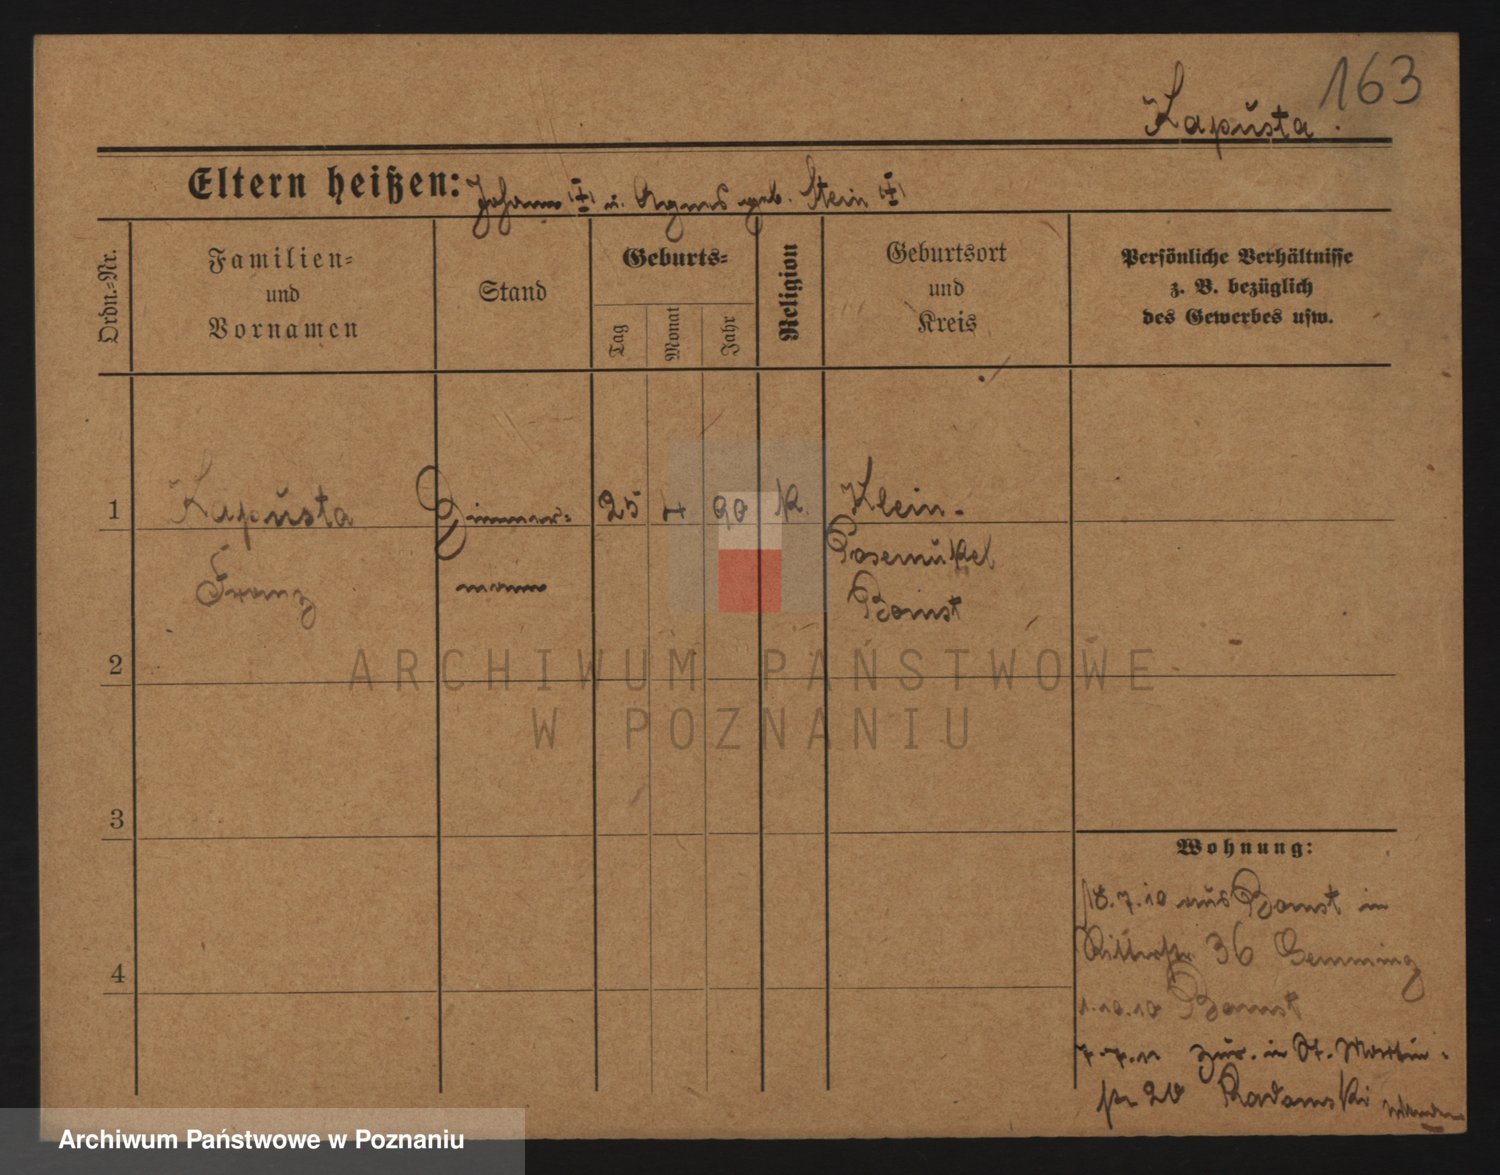 163
Kapusta.
Eltern heißen: Johann (‡) u. Agnes geb. Stein (‡)
Ordn.-Nr.
Familien-
und
Vornamen
Stand
Geburts-
Tag
Monat
Jahr
Religion
Geburtsort
und
Kreis
Persönliche Verhältnisse
z. B. bezüglich
des Gewerbes usw.
1 Kapusta Zimmer- 25 4 90 k. Klein-
Posemukel
Franz mann Bomst
2
3
4
Wohnung:
18.7.10 aus Bomst in
Ritterstr 36 Gemming
1.10.10 Bomst
7.7.11 zur. in St. Martin-
str 20 Radomski
ARCHIWUM PAŃSTWOWE
W POZNANIU
Archiwum Państwowe w Poznaniu